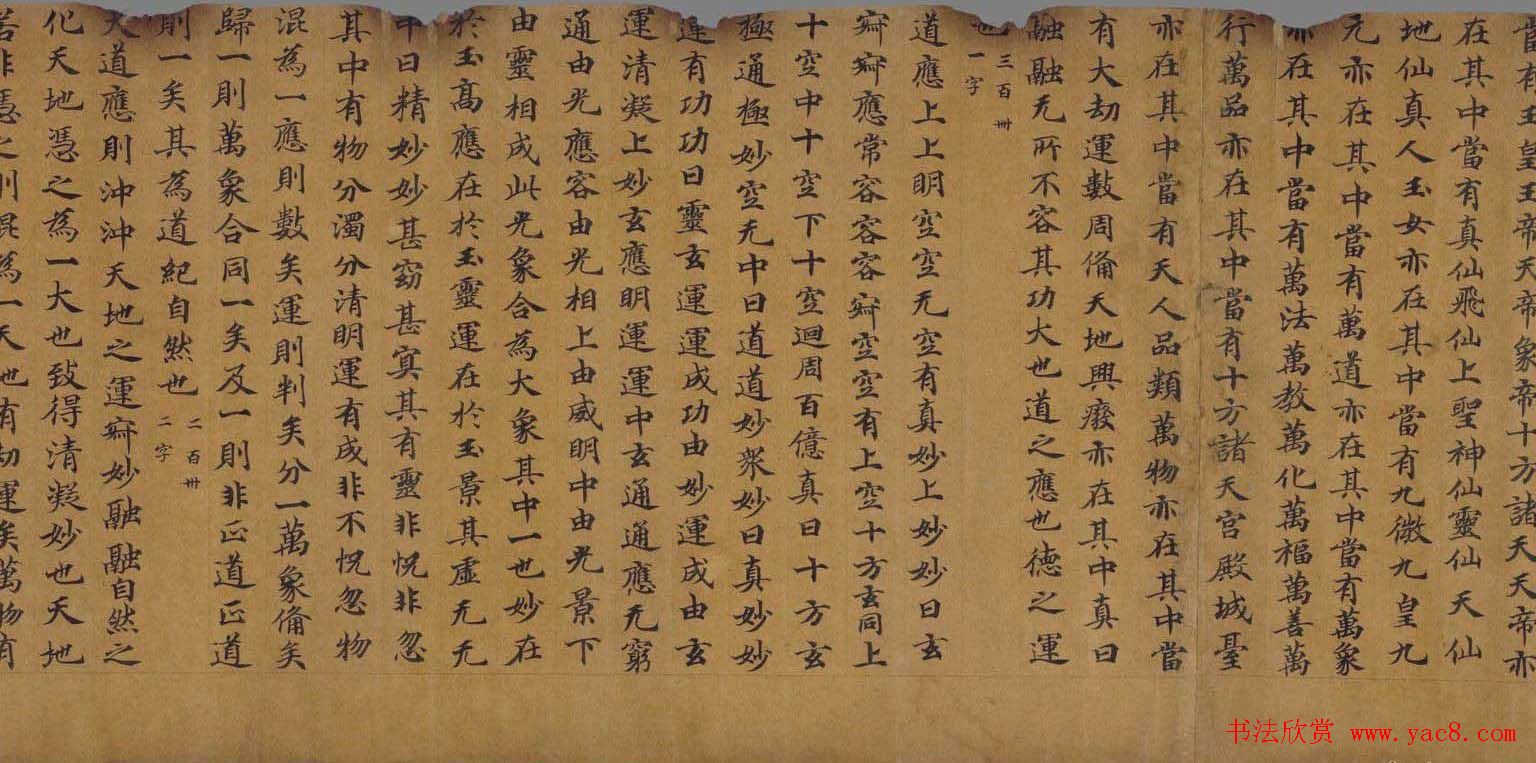 當有玉皇玉帝天帝象帝十方諸天天帝亦
在其中當有真仙飛仙上聖神仙靈仙天仙
地仙真人玉女亦在其中當有九微九皇九
元亦在其中當有萬道亦在其中當有萬象
亦在其中當有萬法萬教萬化萬福萬善萬
行萬品亦在其中當有十方諸天宮殿城臺
亦在其中當有天人品類萬物亦在其中當
有大劫運數周俻天地興癈亦在其中真曰
融融无所不容其功大也道之應也德之運
也
三百卌
一字
道應上上明空空无空有真妙上妙妙曰玄
寂寂應常容容容寂空空有上空十方玄同上
十空中十空下十空迴周百億真曰十方玄
極通極妙空无中曰道道妙衆妙曰真妙妙
運有功功曰靈玄運運成功由妙運成由玄
運清凝上妙玄應明運運中玄通通應无窮
通由光應容由光相上由威明中由光景下
由靈相成此光象合為大象其中一也妙在
於玉髙應在於玉靈運在於玉景其虛无无
中曰精妙妙甚窈甚㝠其有靈非怳非忽
其中有物分濁分清明運有成非不怳忽物
混為一應則數矣運則判矣分一萬象俻矣
歸一則萬象合同一矣及一則非正道正道
則一矣其為道紀自然也
二百卌
二字
大道應則沖沖天地之運寂妙融融自然之
化天地憑之為一大也致得清凝妙也天地
若非憑之則混為一天地有劫運矣萬物有
书法欣赏 www.yac8.com